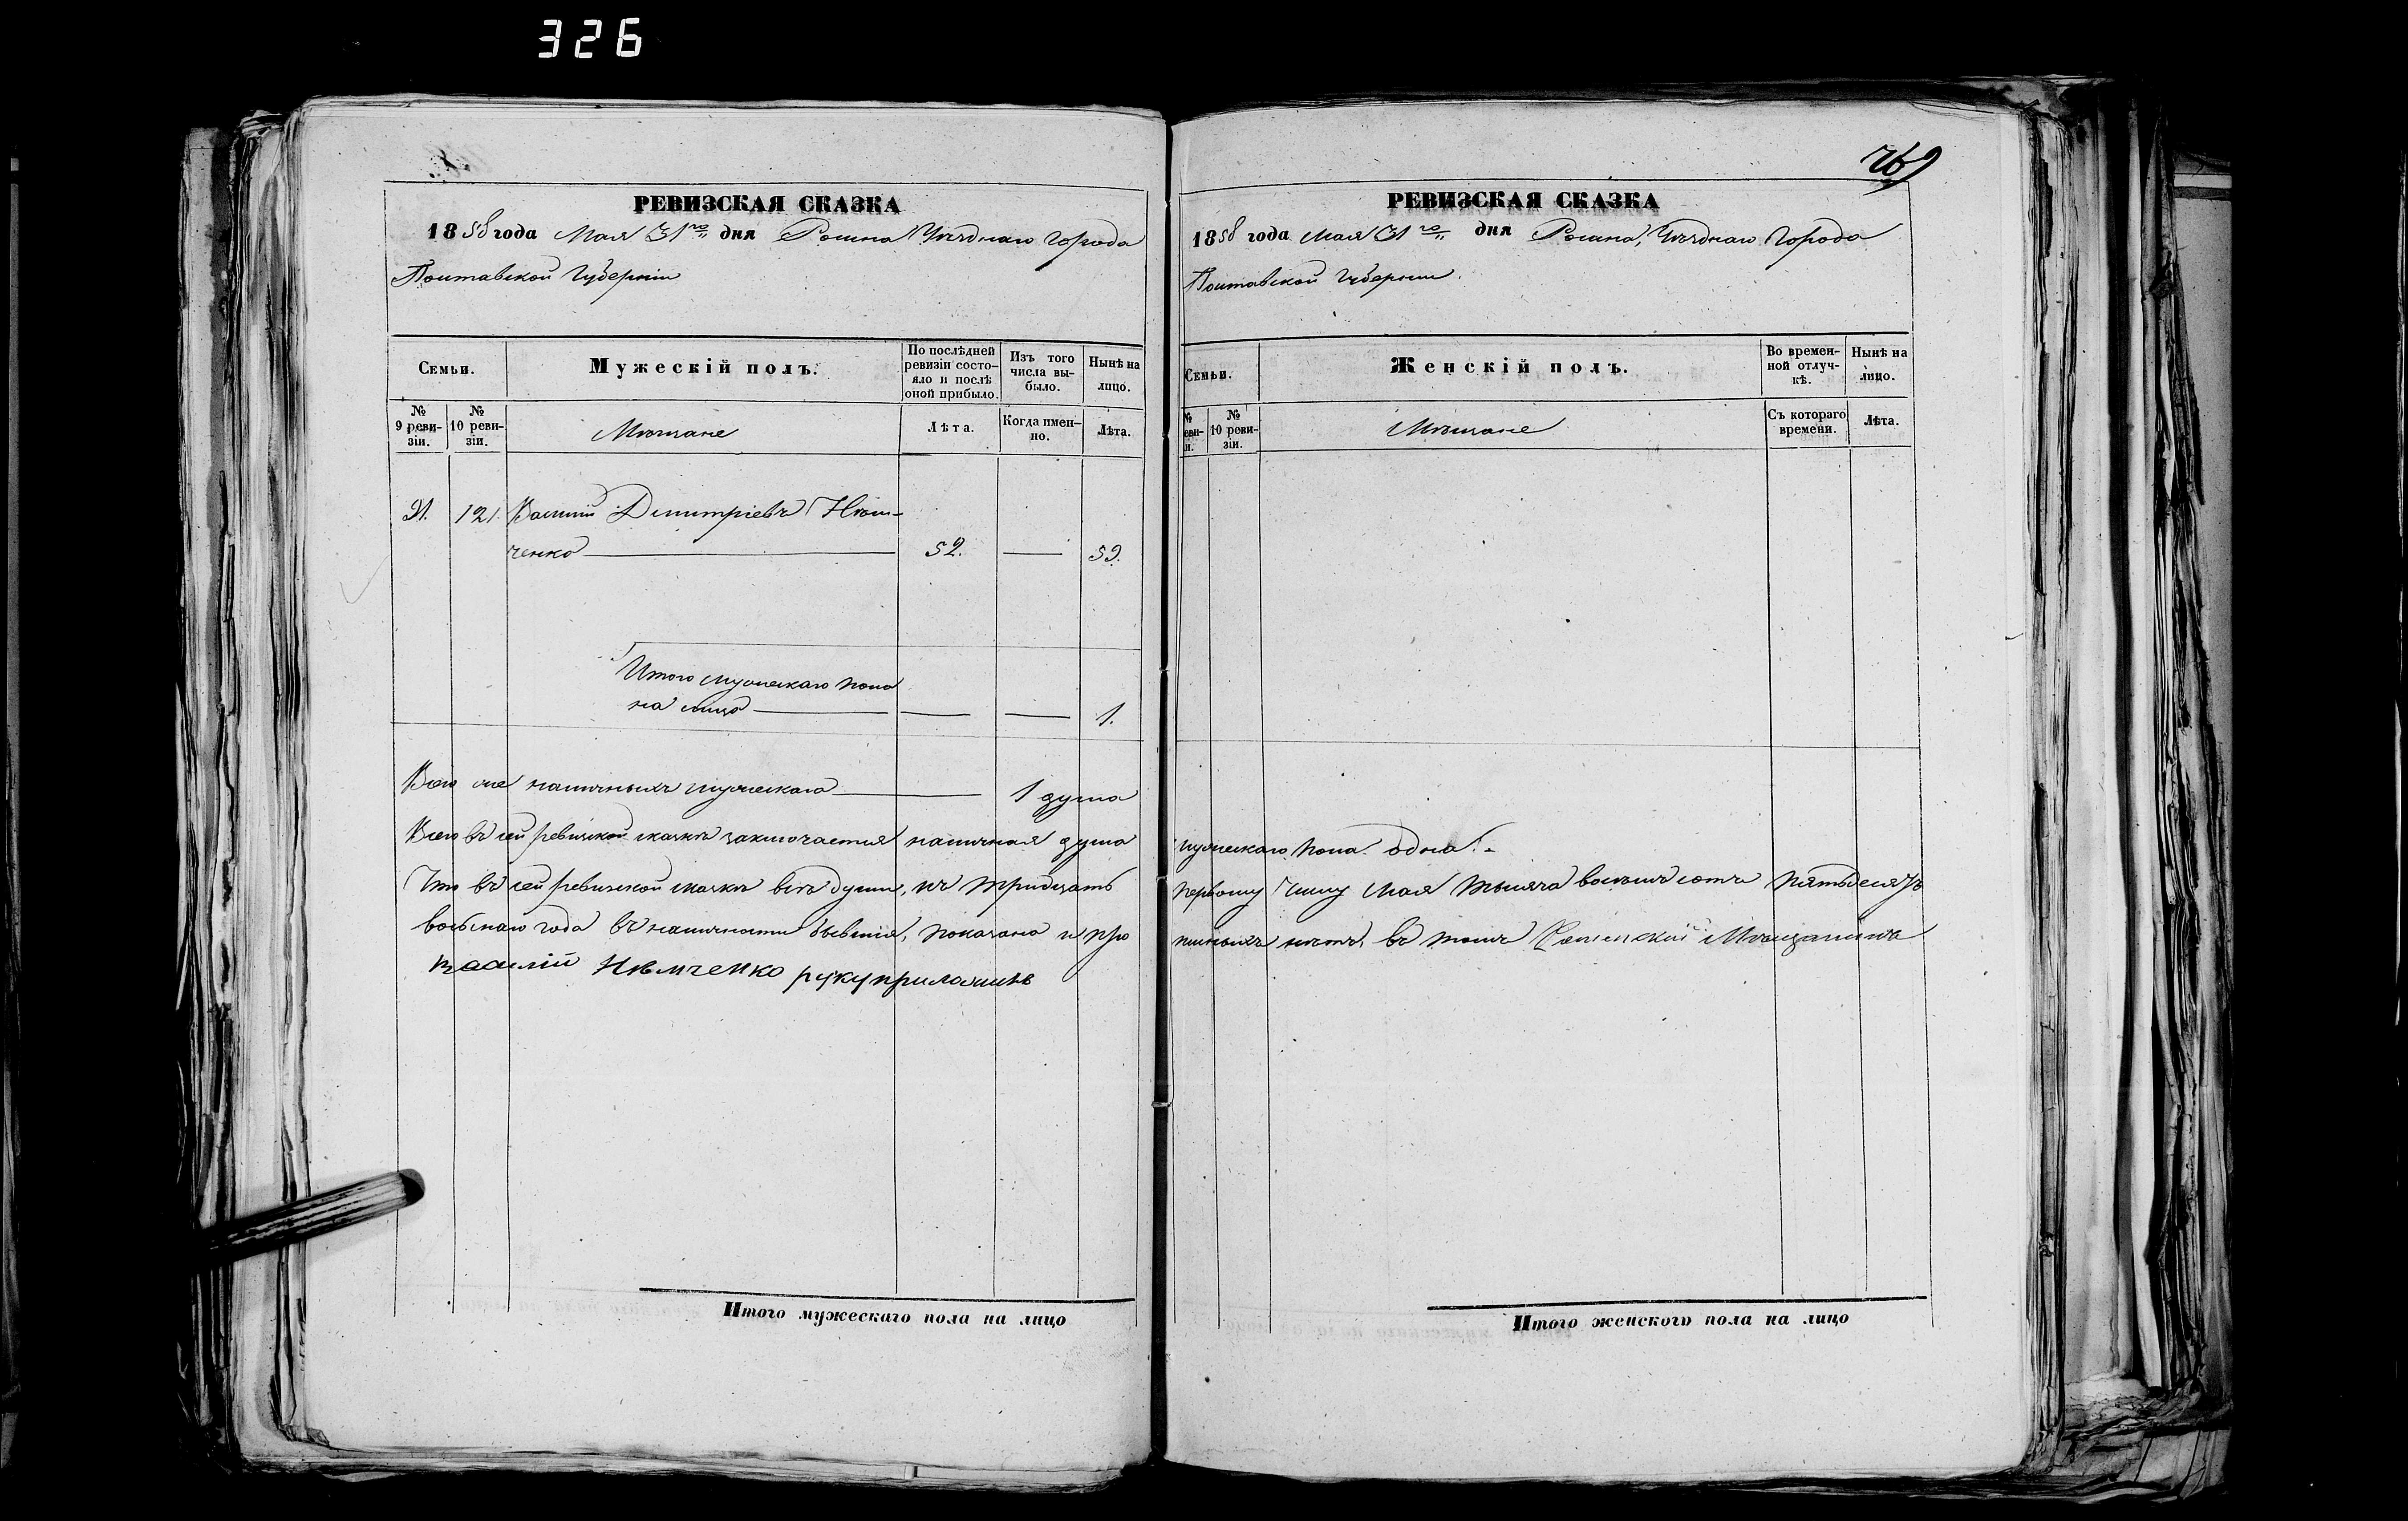 326
РЕВИЗСКАЯ СКАЗКА
1858 года Мая 31го дня Ромна Уѣзднаго города
Полтавской Губерніи
Семьи.
Мужескій полъ.
По послѣдней ревизіи состояло и послѣ оной прибыло.
Изъ того числа выбыло.
Нынѣ на лицо.
№ 9 ревизіи.
№ 10 ревизіи.
Мѣщане
Лѣта.
Когда именно.
Лѣта.
91. 121. Василій Дмитріевъ Нѣм-
ченко 52. — 59.
Итого мужескаго пола
на лицо — — 1.
Всего же наличныхъ мужескаго — 1 душа
Всего въ сей ревизской сказкѣ заключается наличная душа
Что въ сей ревизской сказкѣ всѣ души, къ тридцать
восьмаго года въ наличности бывшія, показаны и про
Василій Нѣмченко руку приложилъ
Итого мужескаго пола на лицо
769
РЕВИЗСКАЯ СКАЗКА
1858 года Мая 31го дня Ромна, Уѣзднаго Города
Полтавской Губерніи.
Семьи.
Женскій полъ.
Во временной отлучкѣ.
Нынѣ на лицо.
№ еви- и.
№ 10 ревизіи.
Мѣщане
Съ котораго времени.
Лѣта.
мужескаго пола одна.
первому числу Мая тысяча восемь сотъ пятьдесятъ
писныхъ нѣтъ, въ томъ Роменскій Мѣщанинъ
Итого женскаго пола на лицо